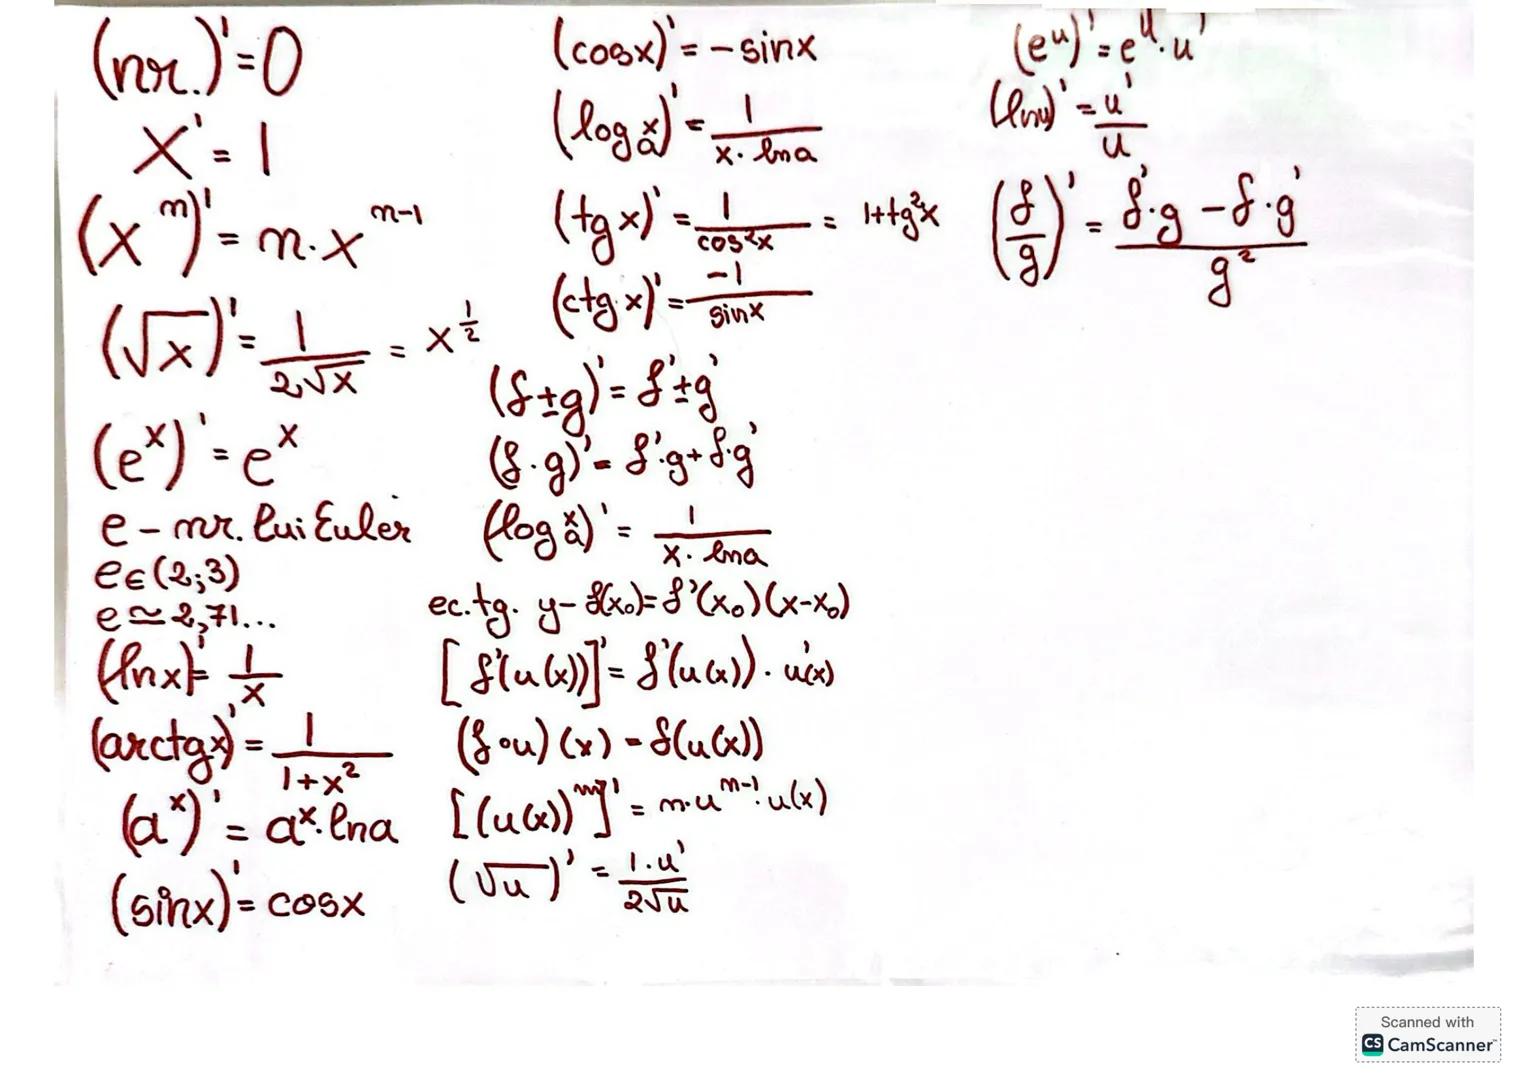 (nr.)' = 0
x' = 1
(xⁿ)' = n·xⁿ⁻¹
(√x)' = 1/(2√x) = x^(1/2)
(eˣ)' = eˣ
e - nr. lui Euler
e∈(2;3)
e ≃ 2,71...
(ln x)' = 1/x
(arctg x)' = 1/(1+x²)
(aˣ)' = aˣ·ln a
(sin x)' = cos x
(cos x)' = - sin x
(log_a x)' = 1/(x·ln a)
(tg x)' = 1/cos²x = 1+tg²x
(ctg x)' = -1/sin x
(f±g)' = f'±g'
(f·g)' = f'·g+f·g'
(log_a x)' = 1/(x·ln a)
ec.tg. y-f(x₀)=f'(x₀)(x-x₀)
[f'(u(x))]' = f'(u(x))·u'(x)
(f∘u)(x) = f(u(x))
[(u(x))ⁿ]' = n·uⁿ⁻¹·u(x)
(√u)' = 1·u'/(2√u)
(eᵘ)' = eᵘ·u'
(ln u)' = u'/u
(f/g)' = (f'·g - f·g')/g²
Scanned with
CS CamScanner™